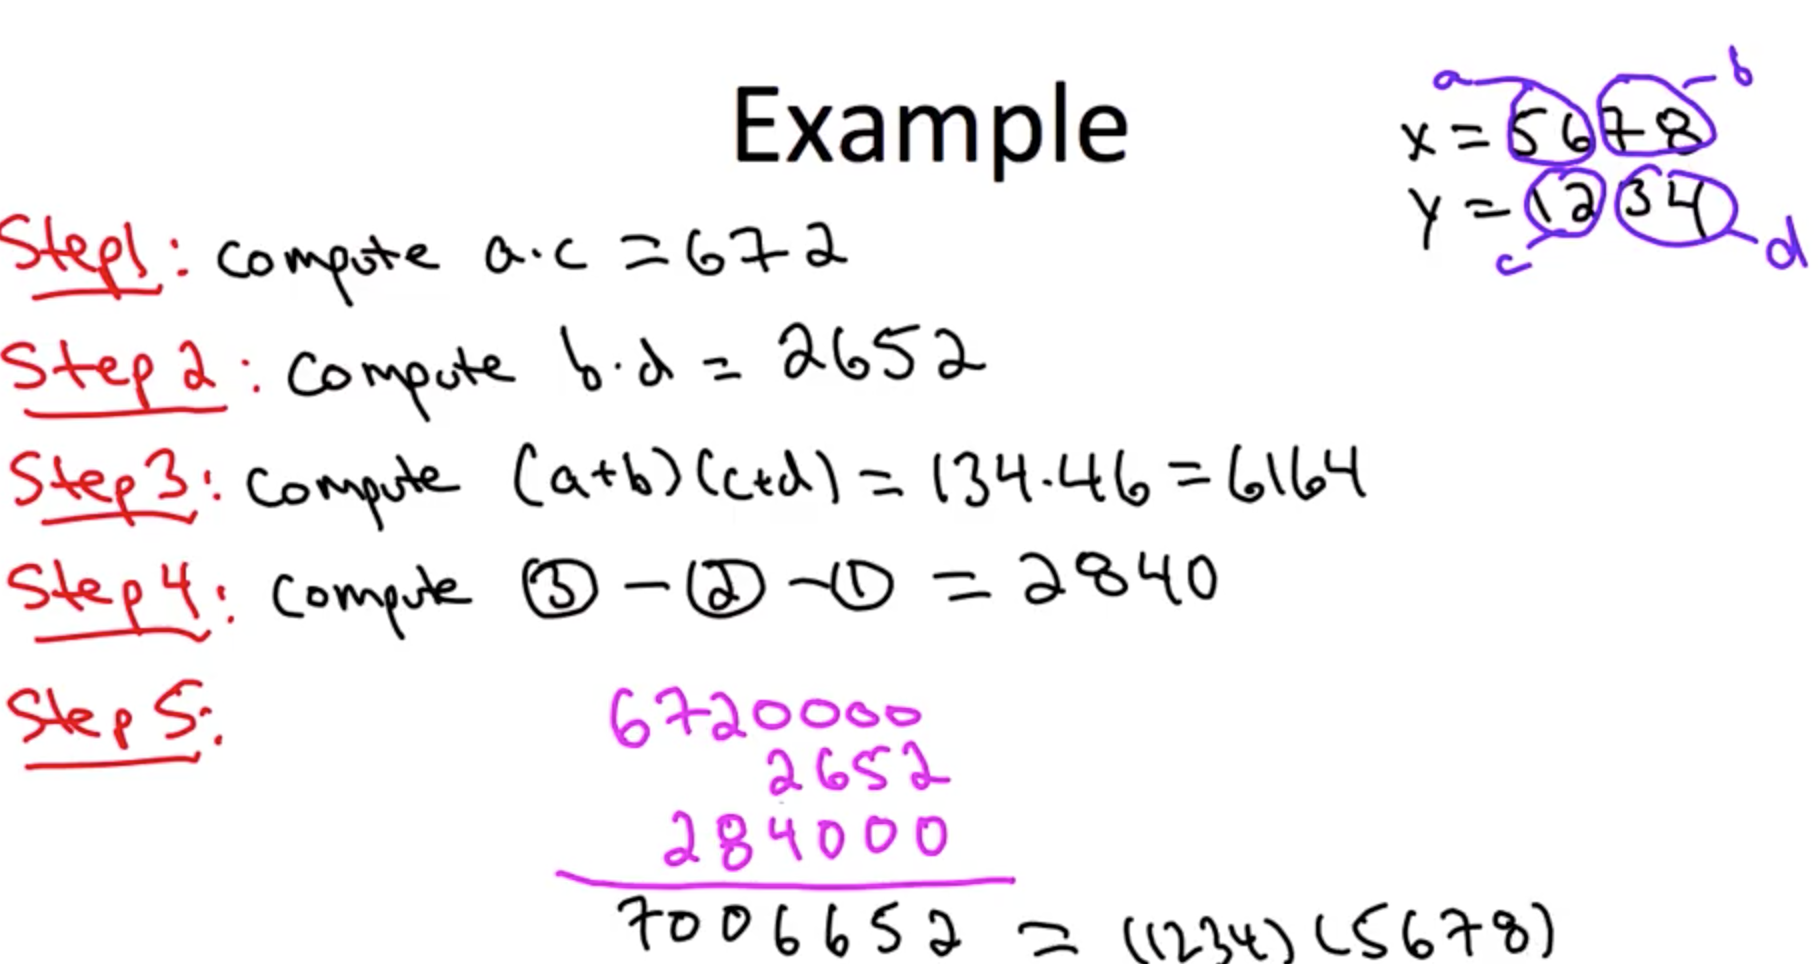 Example
a b
x = 5678
y = 1234
c d
Step1: compute a.c = 672
Step 2: compute b.d = 2652
Step3: compute (a+b)(c+d) = 134.46 = 6164
Step 4: compute ③ - ② - ① = 2840
Step 5:
6720000
2652
284000
7006652 = (1234)(5678)